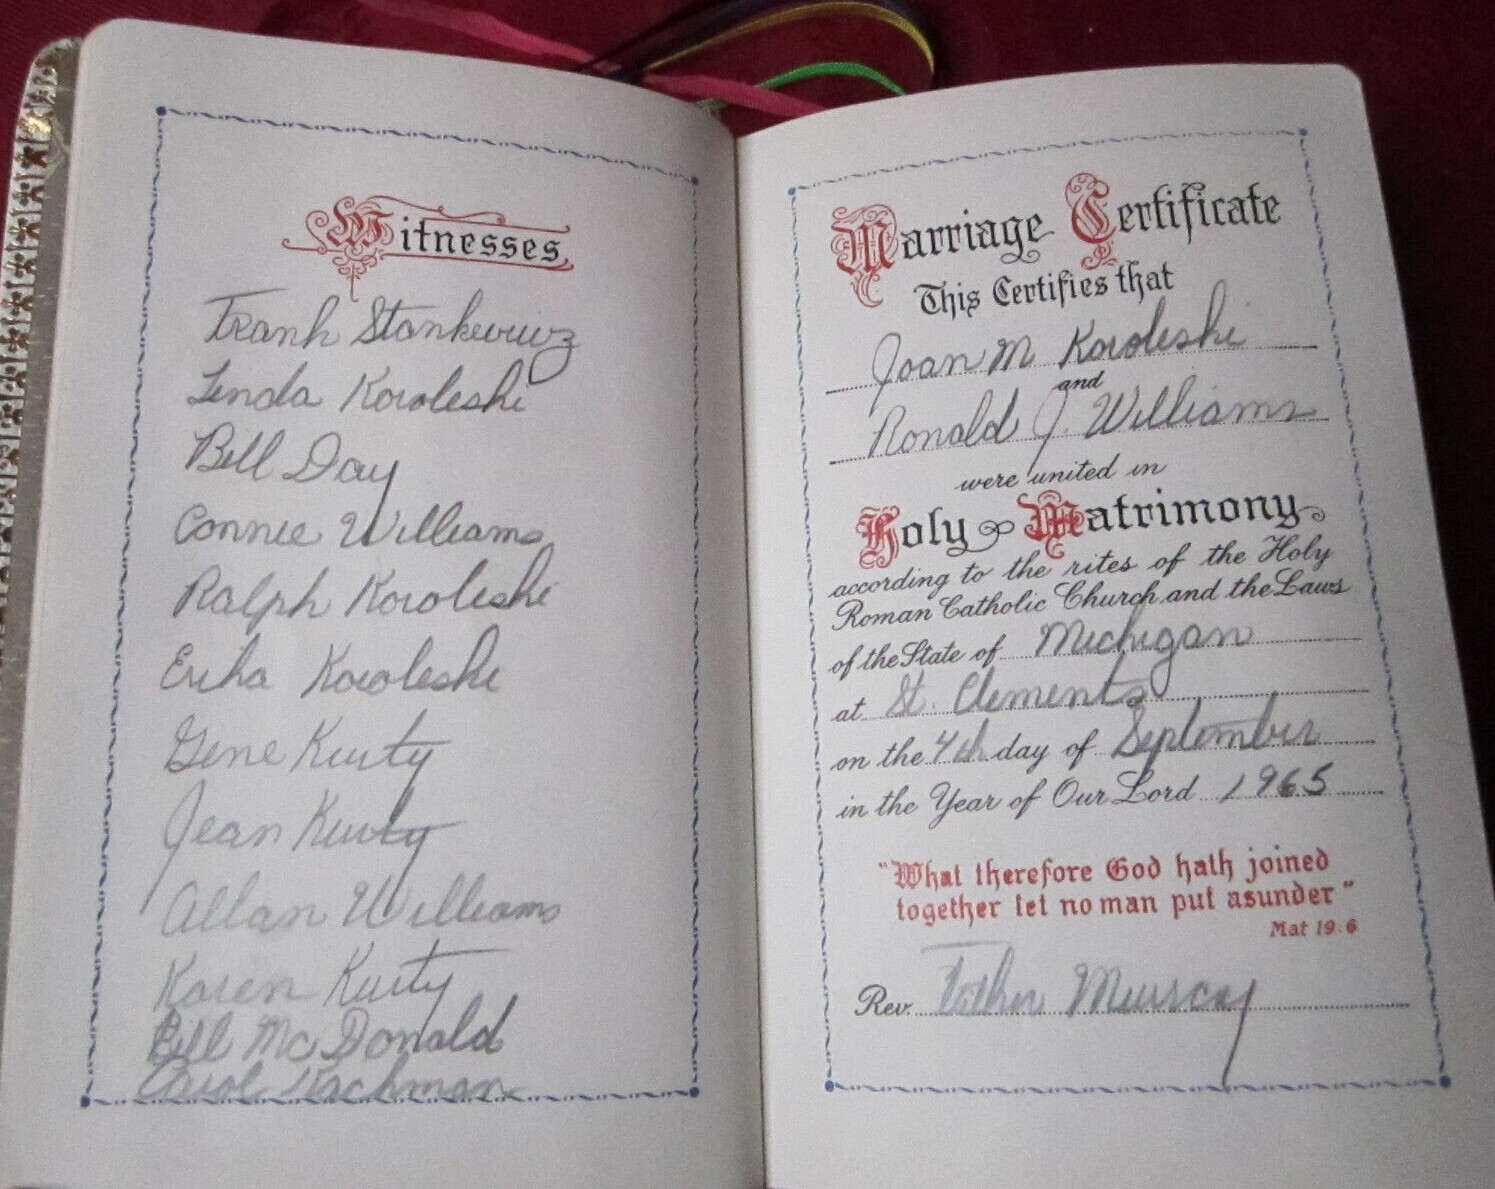 Witnesses
Frank Stankewicz
Linda Koroleski
Bill Day
Connie Williams
Ralph Koroleski
Erika Koroleski
Gene Kurty
Jean Kurty
Allan Williams
Karen Kurty
Bill McDonald
Carol Rachman
Marriage Certificate
This Certifies that
Joan M Koroleski
and
Ronald J. Williams
were united in
Holy Matrimony
according to the rites of the Holy
Roman Catholic Church and the Laws
of the State of Michigan
at St. Clements
on the 4th day of September
in the Year of Our Lord 1965
"What therefore God hath joined
together let no man put asunder"
Mat 19:6
Rev. Father Murray